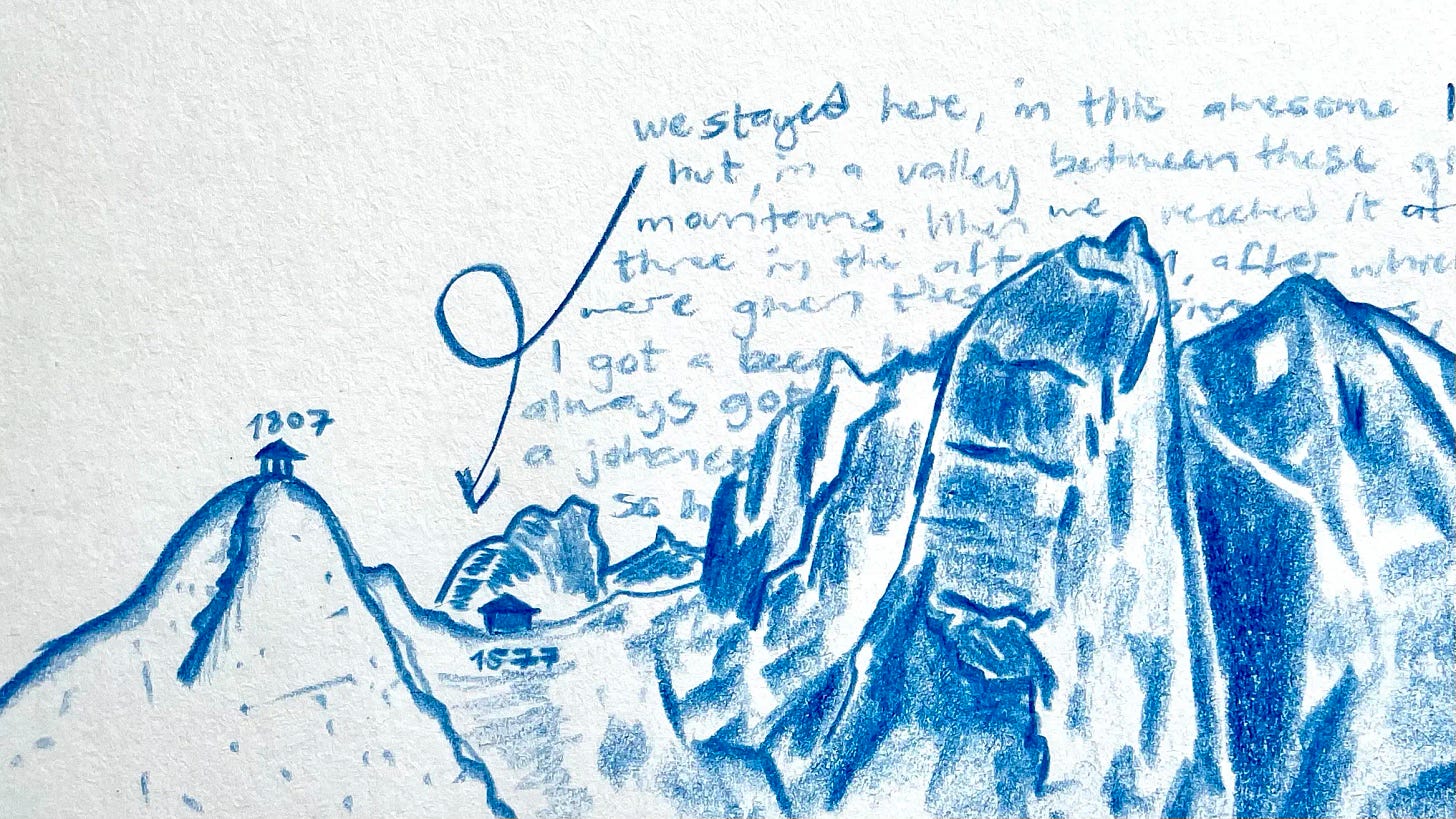 we stayed here, in this awesome
hut, in a valley between these
mountains. When we reached it at
three in the after
were given
I got a beer
always got
a
so
1807
1877